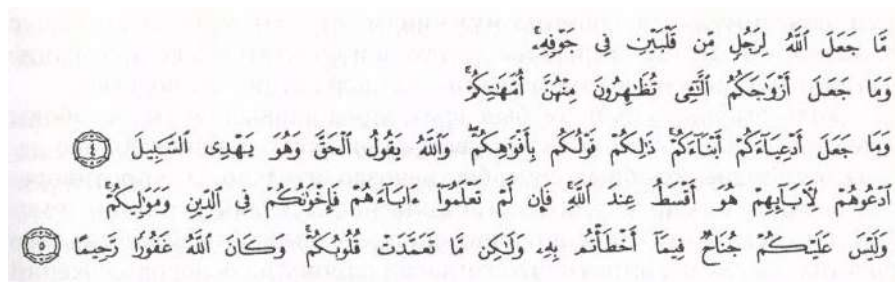 مَّا جَعَلَ ٱللَّهُ لِرَجُلٍ مِّن قَلْبَيْنِ فِى جَوْفِهِۦۚ
وَمَا جَعَلَ أَزْوَٰجَكُمُ ٱلَّٰٓـِٔى تُظَٰهِرُونَ مِنْهُنَّ أُمَّهَٰتِكُمْۚ
وَمَا جَعَلَ أَدْعِيَآءَكُمْ أَبْنَآءَكُمْۚ ذَٰلِكُمْ قَوْلُكُم بِأَفْوَٰهِكُمْۖ وَٱللَّهُ يَقُولُ ٱلْحَقَّ وَهُوَ يَهْدِى ٱلسَّبِيلَ ٤
ٱدْعُوهُمْ لِءَابَآئِهِمْ هُوَ أَقْسَطُ عِندَ ٱللَّهِۚ فَإِن لَّمْ تَعْلَمُوٓا۟ ءَابَآءَهُمْ فَإِخْوَٰنُكُمْ فِى ٱلدِّينِ وَمَوَٰلِيكُمْۚ
وَلَيْسَ عَلَيْكُمْ جُنَاحٌ فِيمَآ أَخْطَأْتُم بِهِۦ وَلَٰكِن مَّا تَعَمَّدَتْ قُلُوبُكُمْۚ وَكَانَ ٱللَّهُ غَفُورًا رَّحِيمًا ٥